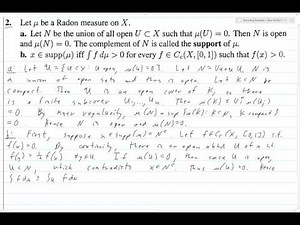 2. Let μ be a Radon measure on X.
a. Let N be the union of all open U ⊂ X such that μ(U) = 0. Then N is open
and μ(N) = 0. The complement of N is called the support of μ.
b. x ∈ supp(μ) iff ∫ f dμ > 0 for every f ∈ Cc(X, [0, 1]) such that f(x) > 0.
a) Let 𝒰 = {U ⊂ X : U open, μ(U) = 0}. Let N = ∪ U. N is
a union of open sets and thus is open. Let K ⊂ N be
compact. Then 𝒰 is an open cover of K, so there
is a finite subcover U₁, ..., Uₙ. Then μ(K) ≤ Σ μ(Uⱼ)
= 0. By inner regularity, μ(N) = sup {μ(K): K ⊂ N, K compact}
= 0. Hence N is open and μ(N) = 0.
b) First, suppose x ∈ supp(μ) = Nᶜ. Let f ∈ Cc(X, [0,1]) s.t.
f(x) > 0. By continuity, there is an open nbhd U of x s.t.
f(y) > ½ f(x) ∀ y ∈ U. If μ(U) = 0, then since U is open,
U ⊂ N, which contradicts x ∈ Nᶜ. Thus μ(U) > 0. Hence
∫ f dμ ≥ ∫ f dμ